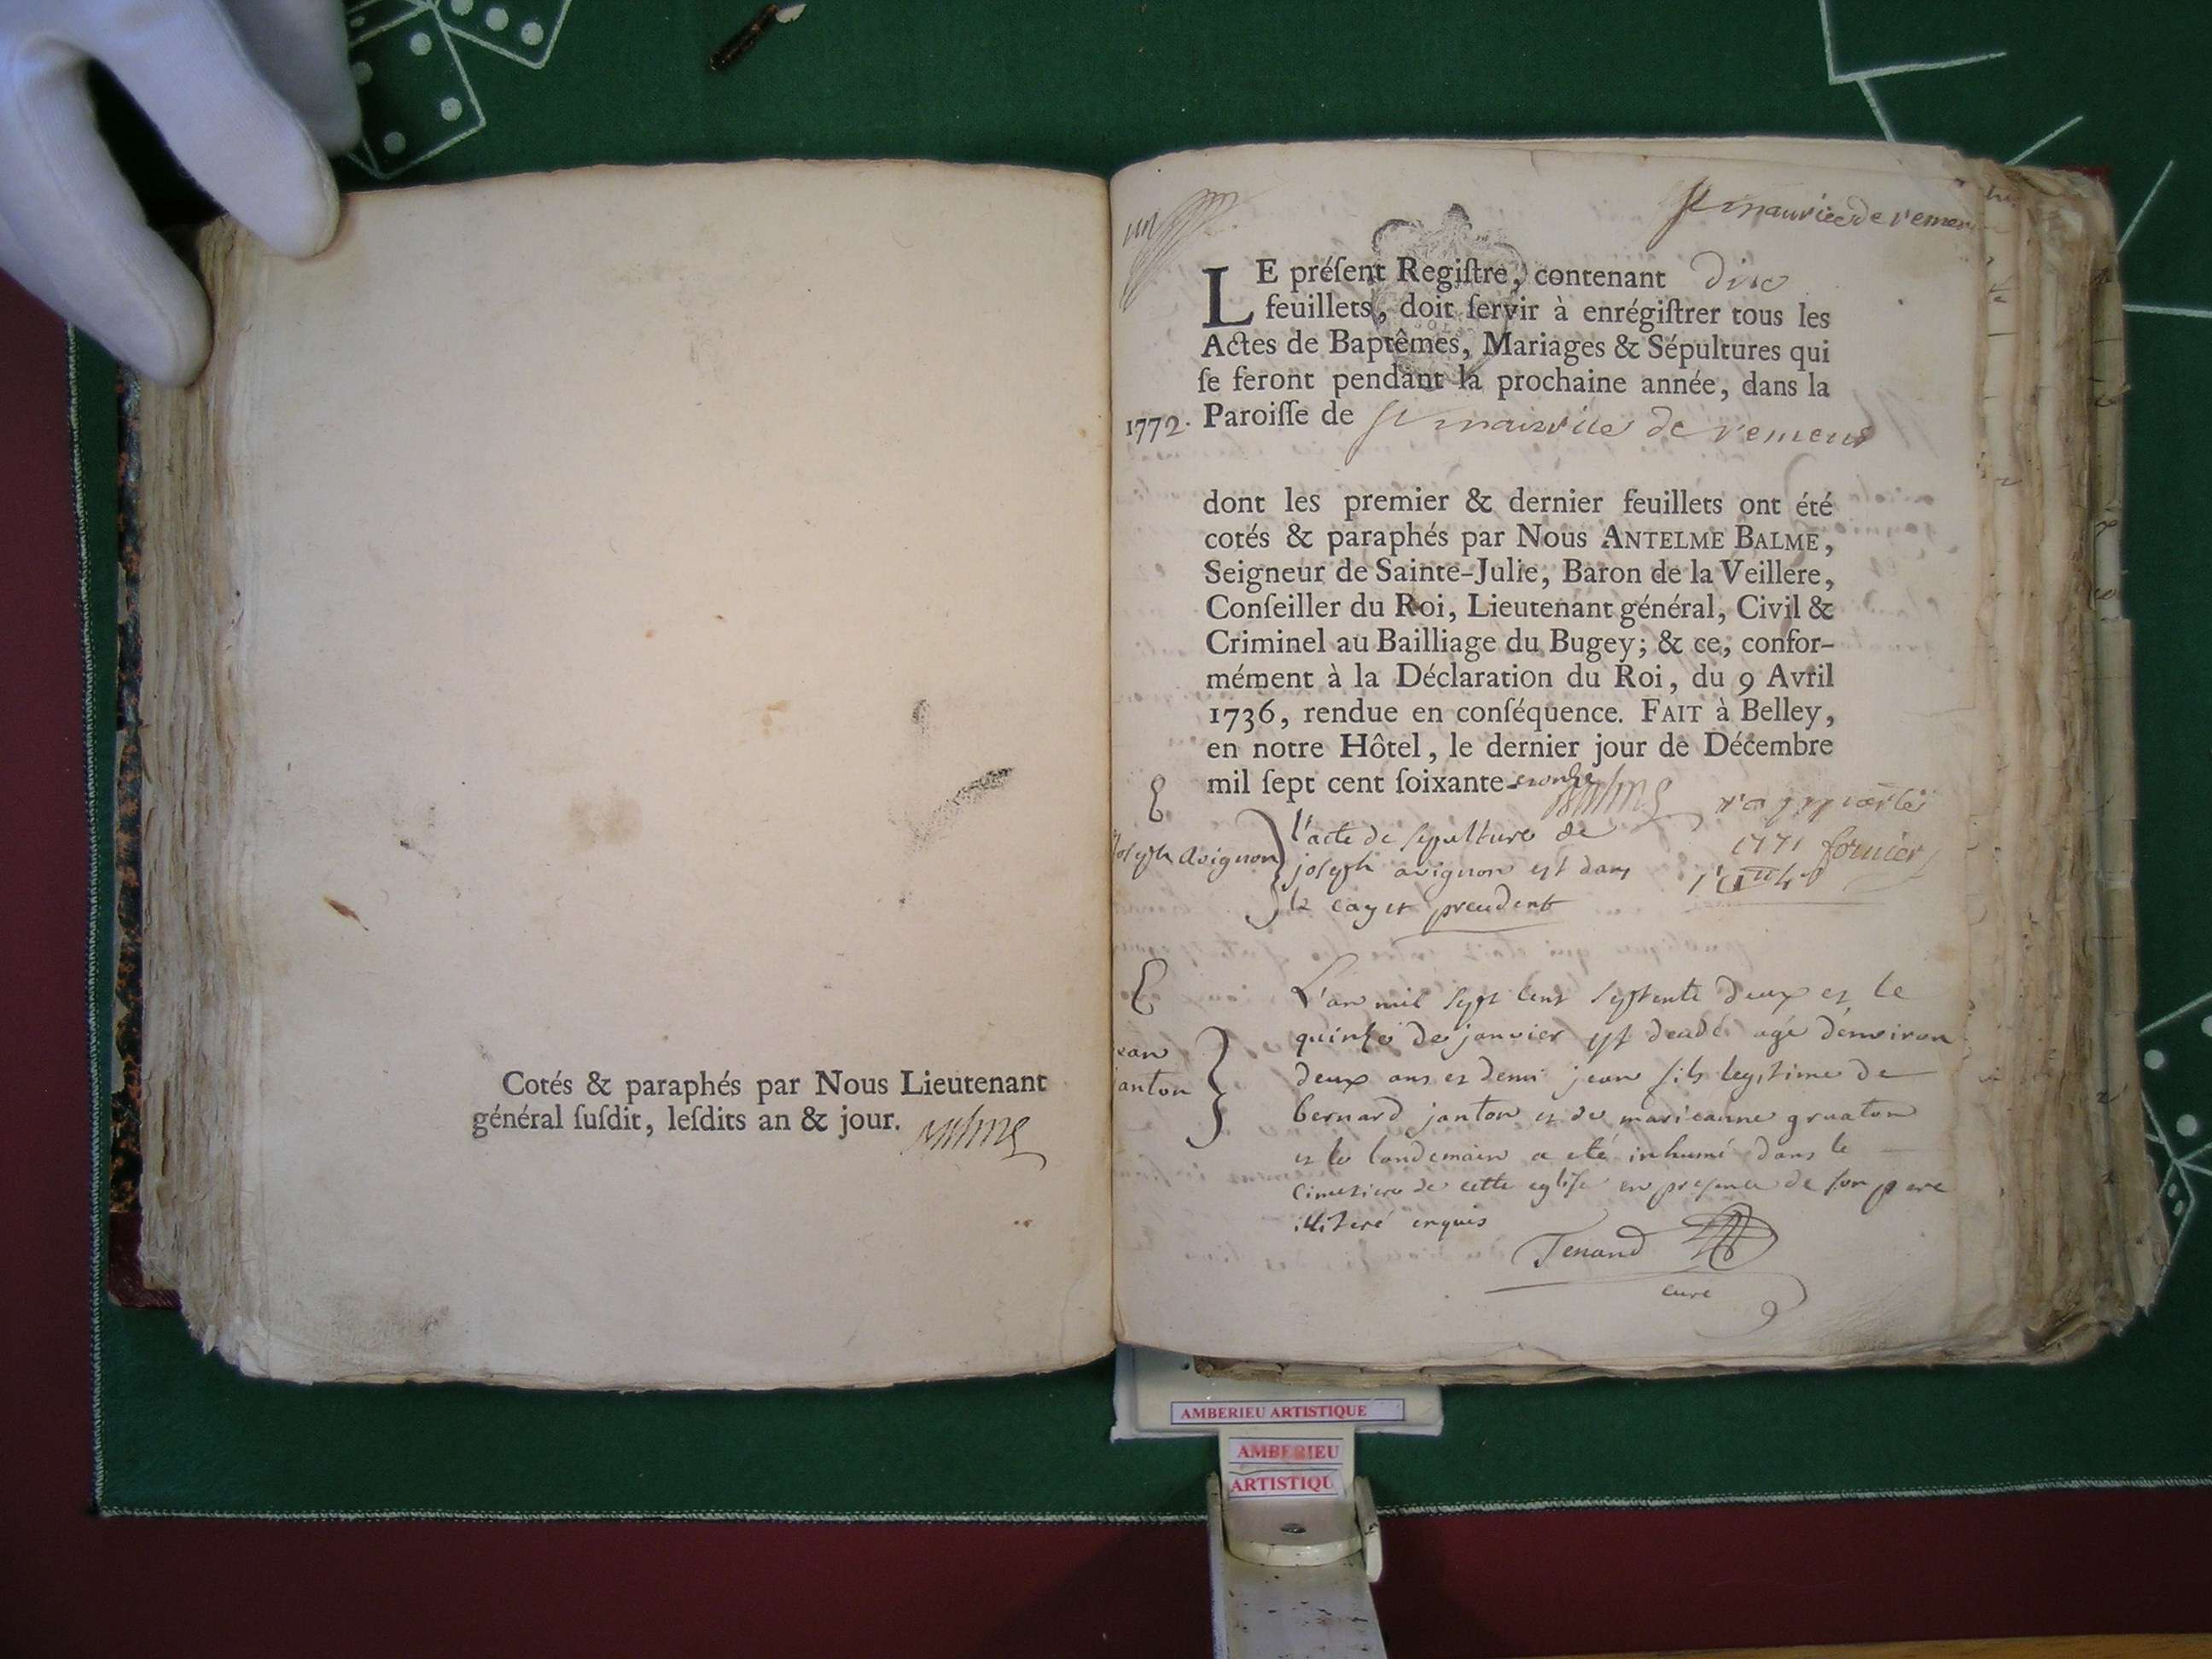 Cotés & paraphés par Nous Lieutenant
général ſuſdit, leſdits an & jour.
Balme
St mauricederemens
LE préſent Regiſtre, contenant dix
feuillets, doit ſervir à enrégiſtrer tous les
Actes de Baptêmes, Mariages & Sépultures qui
ſe feront pendant la prochaine année, dans la
1772. Paroiſſe de St maurice de remens
dont les premier & dernier feuillets ont été
cotés & paraphés par Nous ANTELME BALME,
Seigneur de Sainte-Julie, Baron de la Veillere,
Conſeiller du Roi, Lieutenant général, Civil &
Criminel au Bailliage du Bugey; & ce, confor-
mément à la Déclaration du Roi, du 9 Avril
1736, rendue en conſéquence. FAIT à Belley,
en notre Hôtel, le dernier jour de Décembre
mil ſept cent ſoixante-et onze Balme
joseph avignon
l'acte de sepulture de
joseph avignon est dans
le cayer precedent
1771
L'an mil sept cent septente deux et le
quinze de janvier est decedé agé d'environ
deux ans et demi jean fils legitime de
bernard janton et de marieanne gruaton
et le landemain a eté inhumé dans le
cimetiere de cette eglise en presence de son pere
illiteré enquis
ean
anton
Tenand
curé
AMBERIEU ARTISTIQUE
AMBERIEU
ARTISTIQU